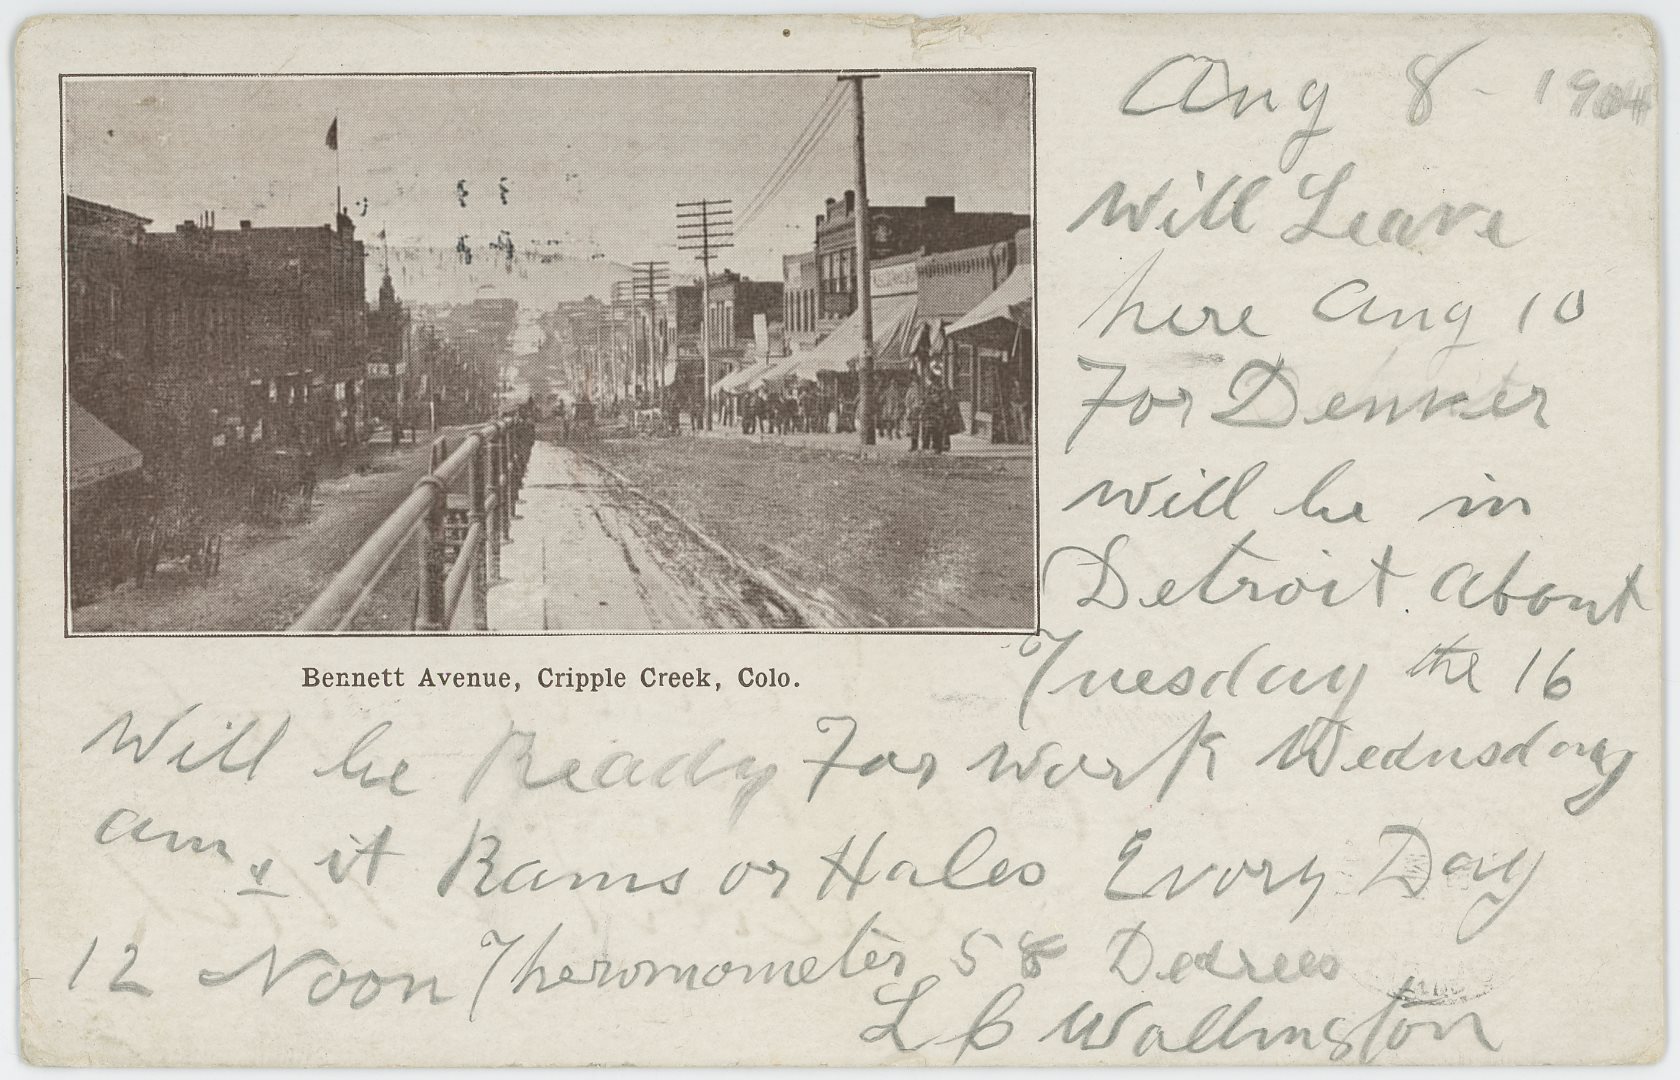 Aug 8 - 1904
Will Leave
here Aug 10
For Denver
will be in
Detroit About
Tuesday the 16
Bennett Avenue, Cripple Creek, Colo.
Will be Ready For work Wednsday
am. it Rains or Hales Evory Day
12 Noon Theromometer 58 Dedrees
L C Wallington